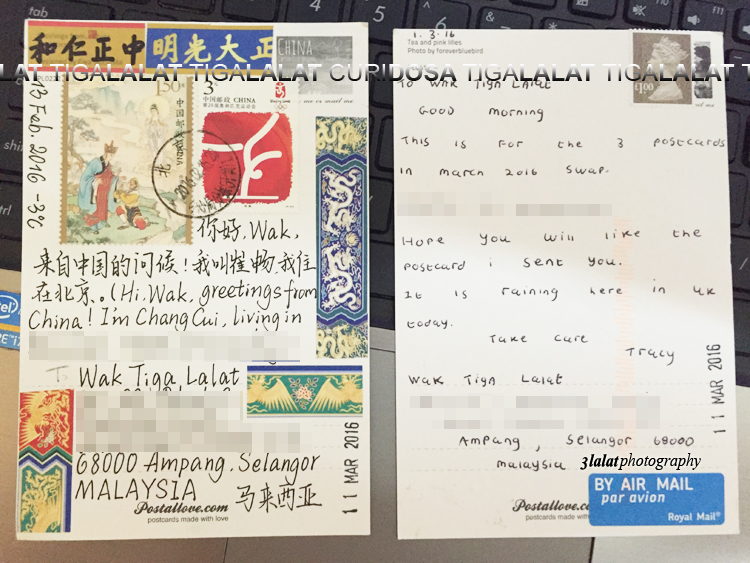 和仁正中
明光大正
CHINA
TIGALALAT TIGALALAT CURIDOSA TIGALALAT TIGALALAT
15 Feb. 2016 -3℃
1.50元
中国邮政
CHINA
3元
中国邮政 CHINA
你好, Wak,
来自中国的问候! 我叫崔畅, 我住
在北京。(Hi, Wak, greetings from
China! I'm Chang Cui, living in
To Wak Tiga Lalat
68000 Ampang, Selangor
MALAYSIA 马来西亚
11 MAR 2016
Postallove.com
postcards made with love
1.3.16
Tea and pink lilies.
Photo by foreverbluebird.
£1.00
To Wak Tiga Lalat
Good morning
This is for the 3 postcards
in march 2016 swap.
Hope you will like the
postcard i sent you.
It is raining here in uk
today.
Take care
Tracy
Wak Tiga Lalat
11 MAR 2016
Ampang, Selangor 68000
malaysia
3lalatphotography
BY AIR MAIL
par avion
Royal Mail
Postallove.com
postcards made with love
shi
ctrl
intel